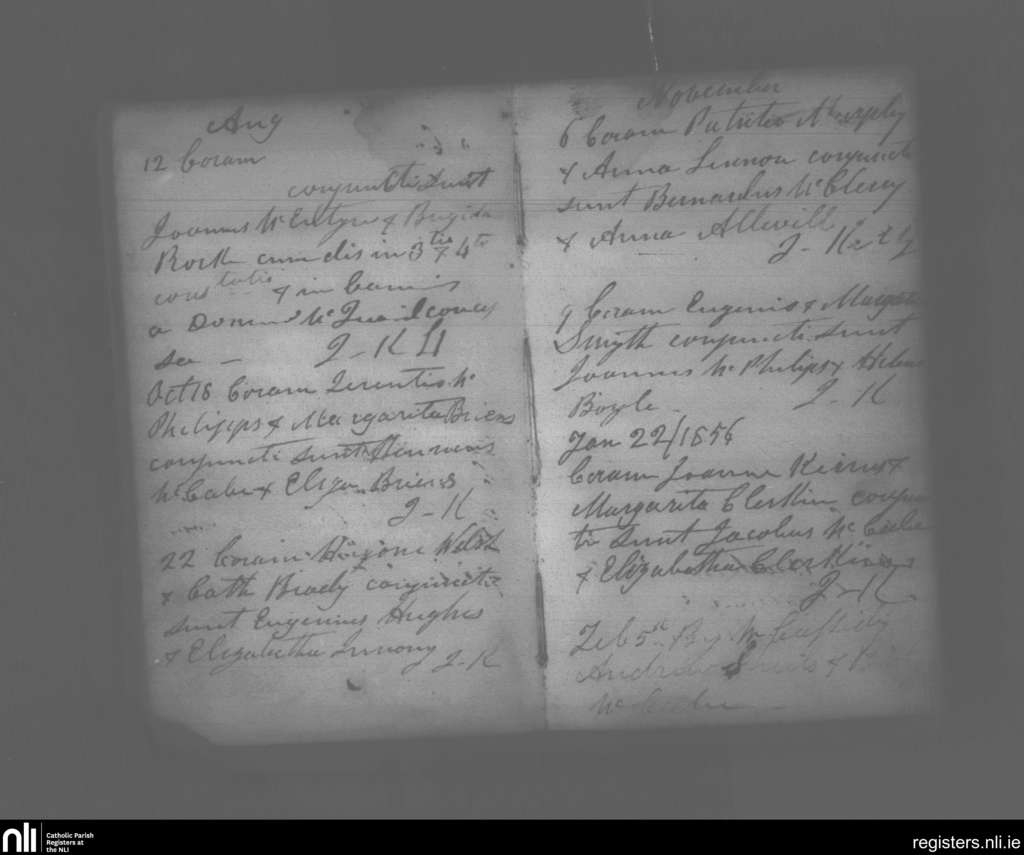 Aug
12 Coram
conjuncti sunt
Joannes McEntyre & Brigida
Rork cum dis in 3tio & 4to
& in bannis
a Domino McQuaid conces
sa —
J-K
Oct 18 Coram Terentio Mc
Philipps & Margarita Briens
conjuncti sunt
McCabe & Eliza Briens
J-K
22 Coram Welsh
& Cath Brady conjuncti
sunt Eugenius Hughes
& Elizabetha
J-K
November
6 Coram Patritio Murphy
& Anna Lennon conjuncti
sunt Bernardus McClery
& Anna
J-
9 Coram Eugenio & Margarita
Smyth conjuncti sunt
Joannes McPhilips & Helena
Boyle
J-K
Jan 22/1856
Coram Joanne &
Margarita Clerkin conjunc
ti sunt Jacobus McCabe
& Elizabetha Clerkin
J-K.
Feb 5th By Mr Cassidy
Andrew &
McCabe —
nli
Catholic Parish
Registers at
the NLI
registers.nli.ie